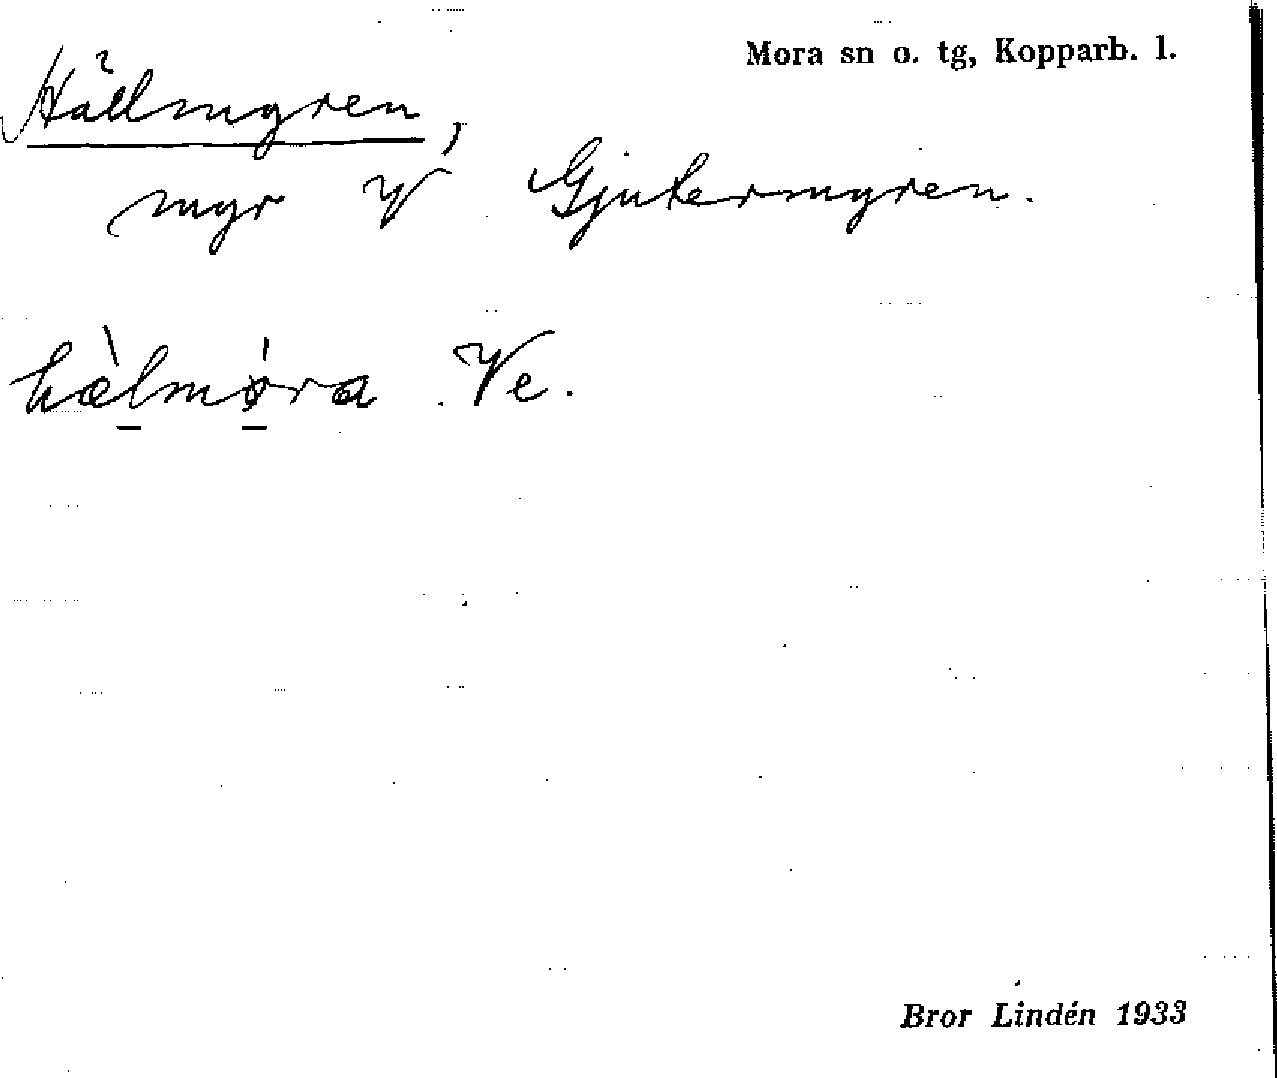 Mora sn o. tg, Kopparb. l.
Hällmyren,
myr V Gjutermyren.
hæ̀lmø̀ra Ve.
Bror Lindén 1933